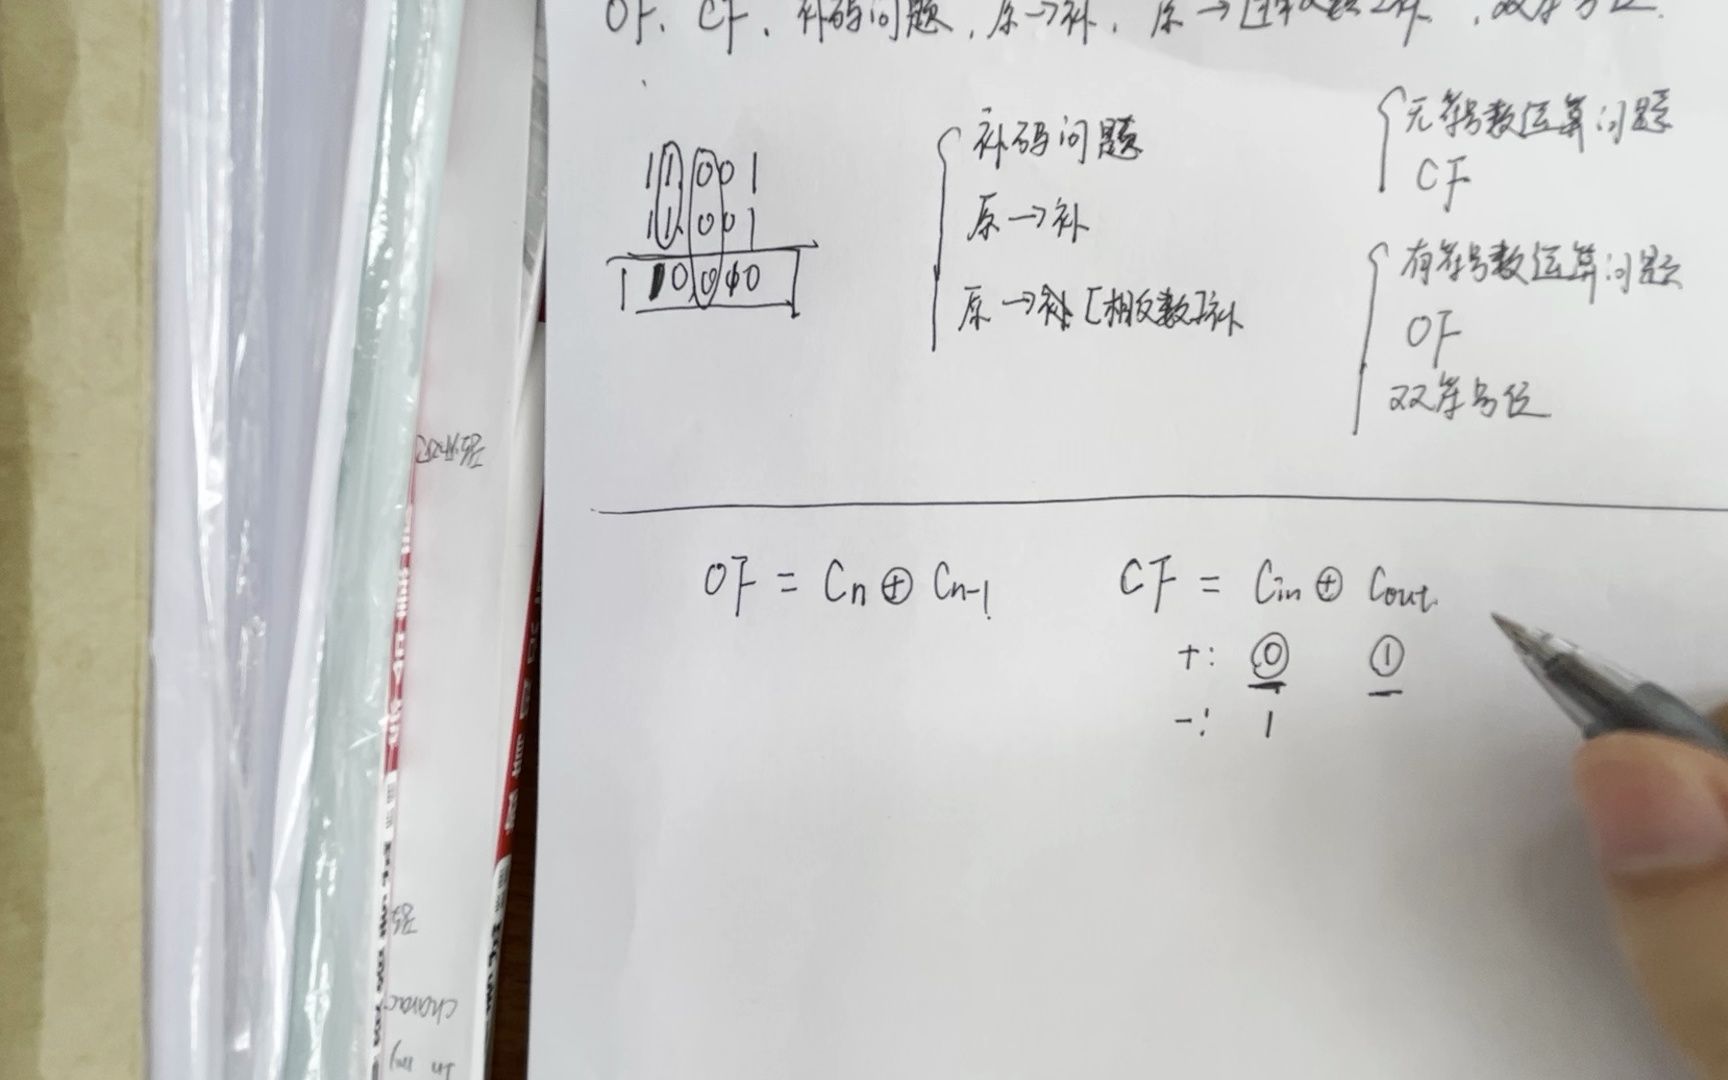 OF. CF. 补码问题, 原→补, 原→ 补, 双符号位.
11001
11001
1 10010
补码问题
原→补
原→补 [相反数]补
无符号数运算问题
CF
有符号数运算问题
OF
双符号位
OF = Cn ⊕ Cn-1
CF = Cin ⊕ Cout.
+: 0 1
-: 1
charac
In my